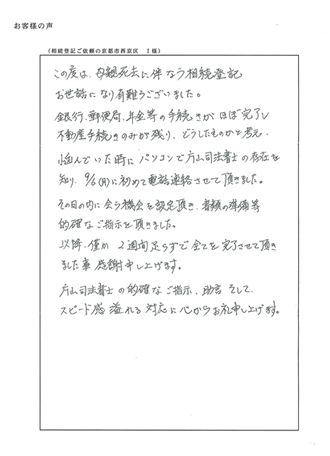 お客様の声
(相続登記ご依頼の京都市西京区 I 様)
この度は、母親死去に伴なう相続登記
お世話になり有難うございました。
銀行、郵便局、年金等の手続きがほぼ完了し
不動産手続きのみが残り、どうしたものかと考え、
悩んでいた時にパソコンで片山司法書士の存在を
知り、9/6(月)に初めて電話連絡させて頂きました。
その日の内に会う機会を設定頂き、書類の準備等
的確なご指示を頂きました。
以降、僅か2週間足らずで全てを完了させて頂き
ました事感謝申し上げます。
片山司法書士の的確なご指示、助言そして
スピード感溢れる対応に心からお礼申し上げます。